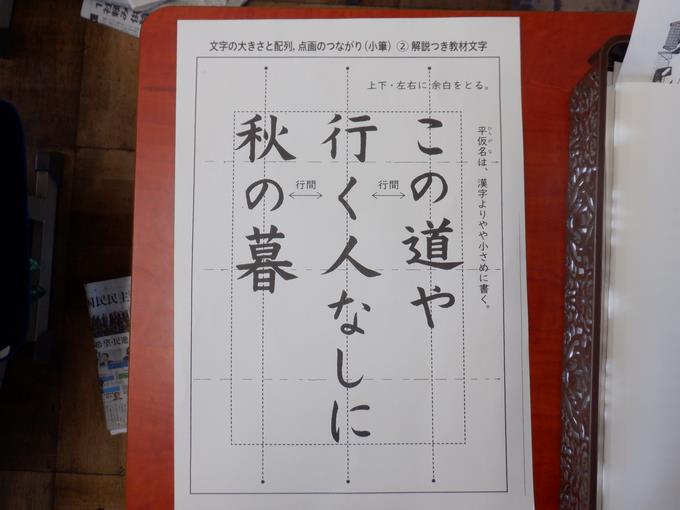 文字の大きさと配列,点画のつながり(小筆) ② 解説つき教材文字
上下・左右に余白をとる。
平仮名は、漢字よりやや小さめに書く。
ひらがな
この道や
行間
行く人なしに
行間
秋の暮
国民民主
希望・民進